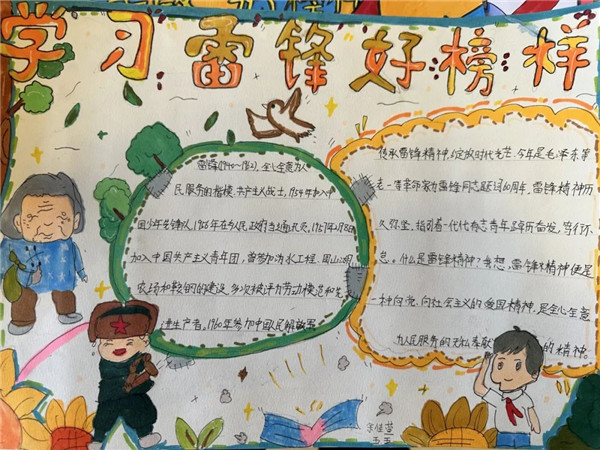 学习雷锋好榜样
雷锋(1940-1962),全心全意为人
民服务的楷模,共产主义战士,1954年加入中
国少年先锋队,1956年在乡人民政府当通讯员,1957年
加入中国共产主义青年团,曾参加沩水工程、团山湖
农场和鞍钢的建设,多次被评为劳动模范和先
进生产者。1960年参加中国人民解放军
传承雷锋精神,绽放时代光芒,今年是毛泽东等
老一辈革命家为雷锋同志题词60周年,雷锋精神历
久弥坚,指引着一代代有志青年踔厉奋发,笃行不
怠。什么是雷锋精神?我想,雷锋精神便是
一种向党、向社会主义的爱国精神,是全心全意
为人民服务的无私奉献的精神。